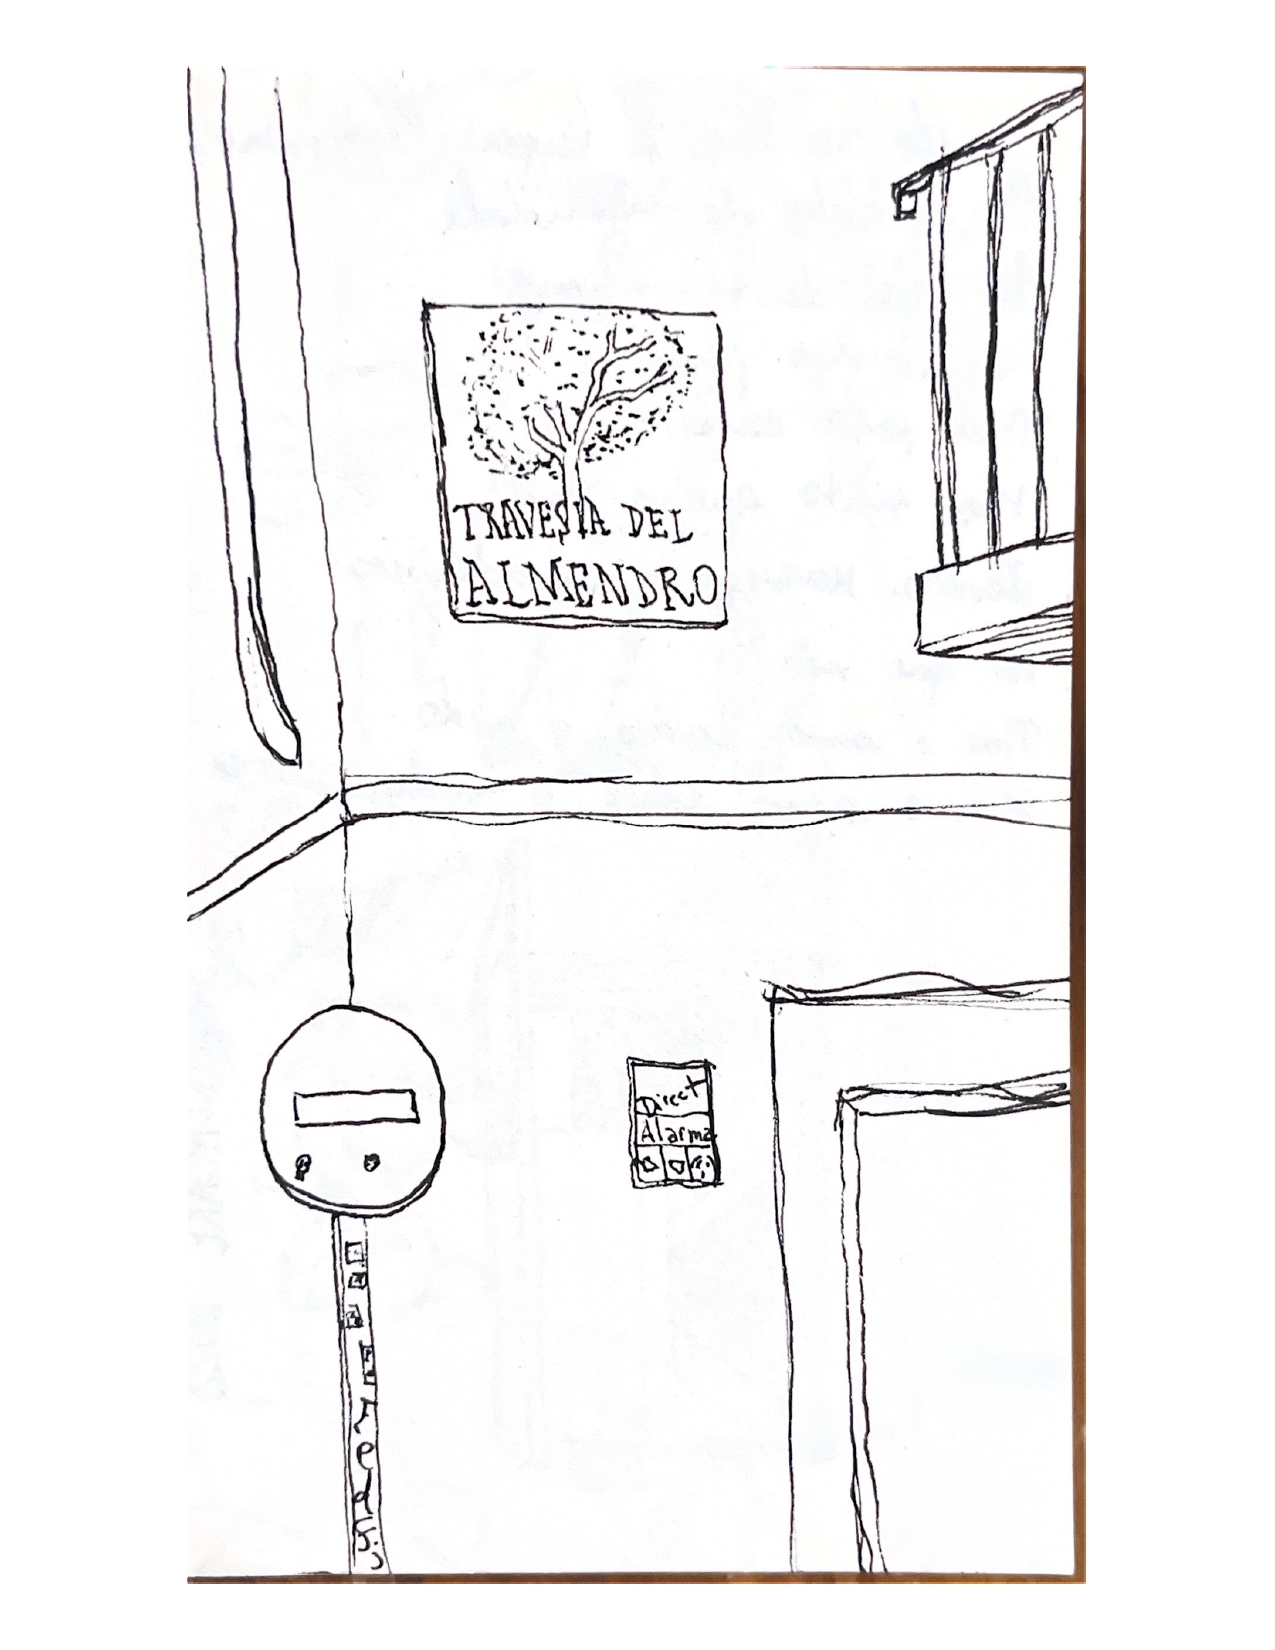 TRAVESIA DEL
ALMENDRO
Direct
Alarma